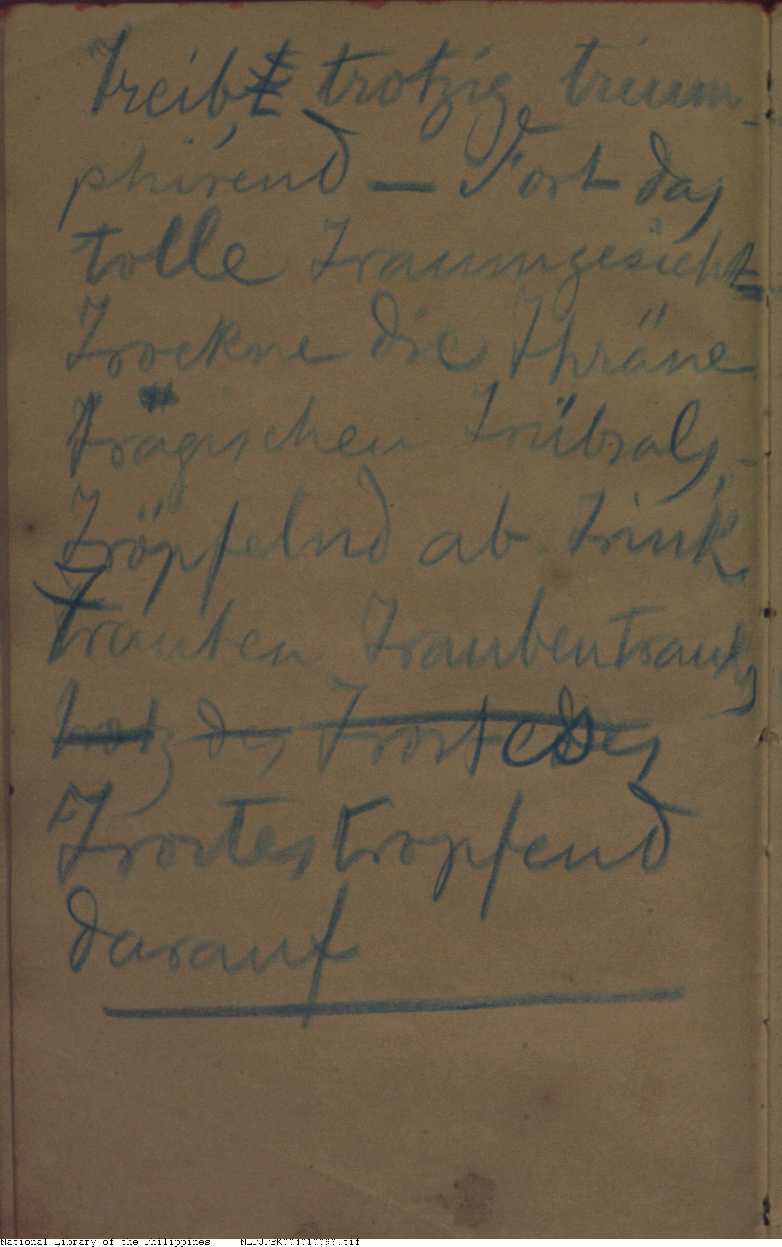 Treibt trotzig trium-
phirend — Fort das
tolle Traumgesicht
Trockne die Thräne
trägischen Trübsals,
Tröpfelnd ab. Trink
Trauben Traubentrank,
trotz des Trostes des
Trostes tropfend
darauf
National Library of the Philippines